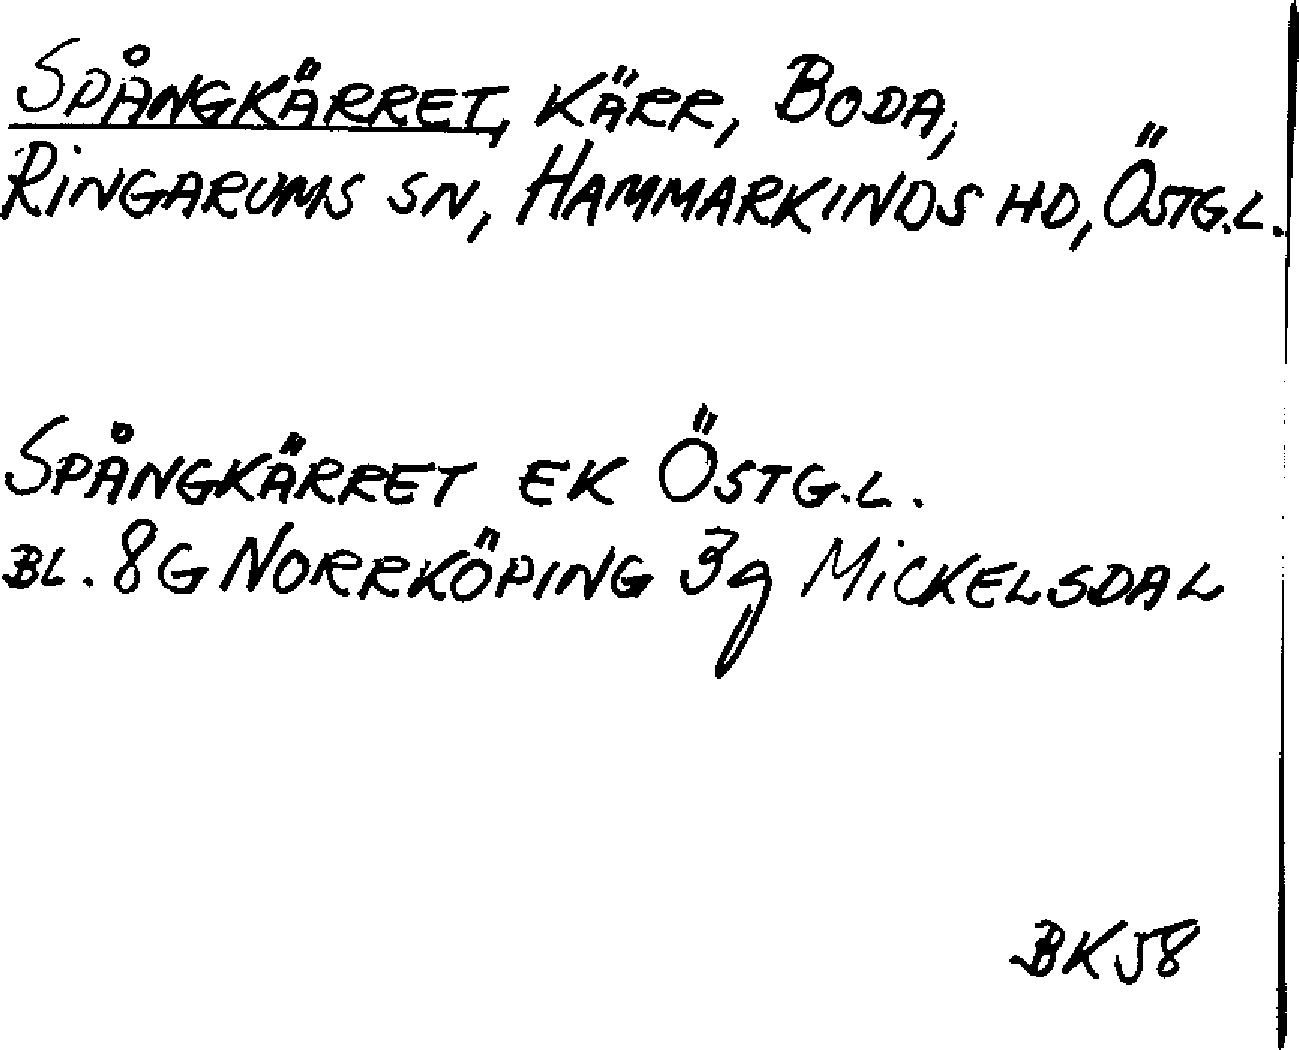 SPÅNGKÄRRET, KÄRR, BODA,
RINGARUMS SN, HAMMARKINDS HD, ÖSTG.L.
SPÅNGKÄRRET EK ÖSTG.L.
BL. 8G NORRKÖPING 3g MICKELSDAL
BK58